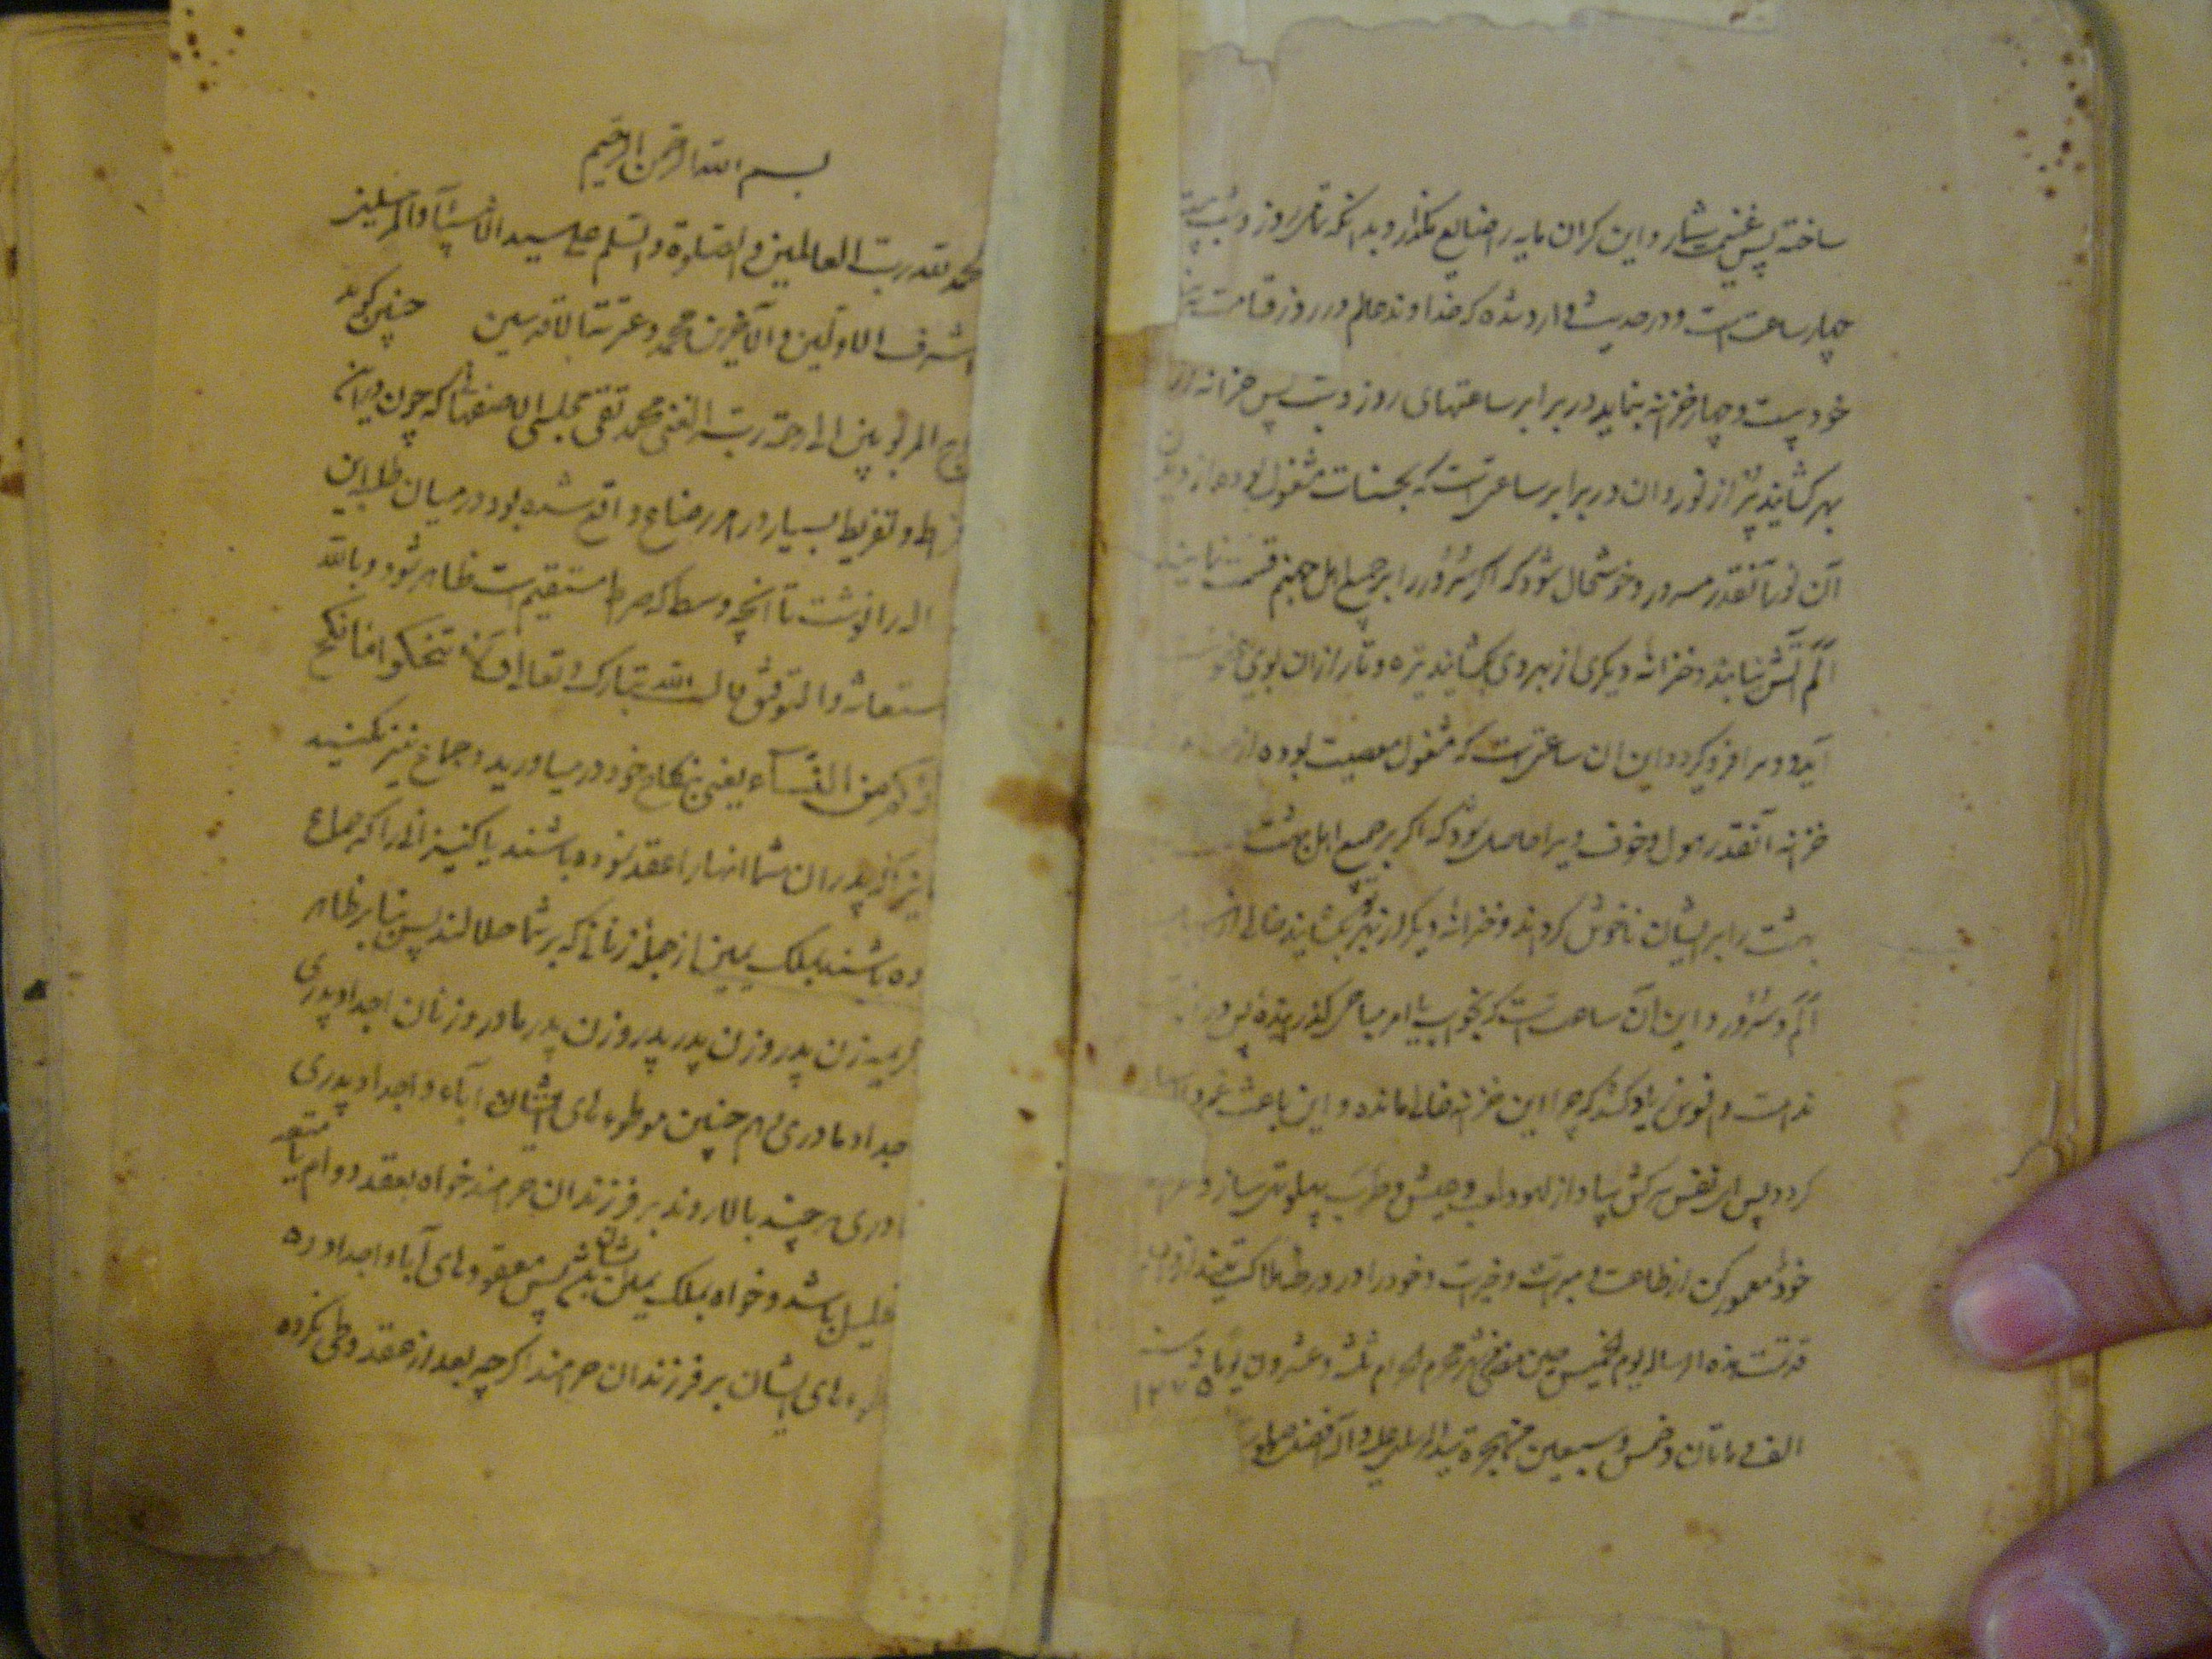 ساخته پس غنیمت شمار و این کران مایه را ضایع مکذار و بدانکه تمام روز و شب بیست
چهار ساعت است و در حدیث وارد شده که خداوند عالم در روز قیامت
خود بیست و چهار خزینه بنماید در برابر ساعتهای روز و شب پس خزانه از
بهر کشایند پر از نور و ان در برابر ساعتی است که بحسنات مشغول بوده از دیدن
آن نور آنقدر مسرور و خوشحال شود که اکر سرور را بر جمیع اهل جهنم قسمت نمایند
الم آتش نیابند و خزانه دیکری از بهر وی بکشایند تیره و تار از ان بوی ناخوش
آید و و سرا فرو کیرد و این ان ساعتی است که مشغول معصیت بوده از
خزینه آنقدر هول و خوف ویرا حاصل شود که اکر بر جمیع اهل بهشت
بهشت را بر ایشان ناخوش کرداند و خزانه دیکر از بهر وی بکشایند خالی از
الم و سرور و این آن ساعت است که بخواب یا امر مباحی کذرانیده پس در
ندامت و افسوس زیاد کشد که چرا این خزینه خالی مانده و این باعث غم و
کردد پس ای نفس سرکش بیا و از لهو و لعب و عیش و طرب پهلو تهی ساز و
خود معمور کن از طاعت و مبرات و خیرات و خود را در ورطه هلاکت میند از
قد تمت هذه الرساله یوم الخمیس حین مضی شهر محرم الحرام ثلث و عشرون یوما و سنه
۱۲۷۵
الف و ماتان و خمس و سبعین من هجرة سید المرسلین علیه و آله
بسم الله الرحمن الرحیم
الحمد لله رب العالمین و الصلوة و السلم علی سید الانبیآء و المرسلین
اشرف الاولین و الآخرین محمد و عترته الاقدسین چنین کوید
المربوبین الی رحمة ربه الغنی محمد تقی مجلسی الاصفهانی که چون
و تفریط بسیار در امر رضاع واقع شده بود در میان طلب این
اله را نوشت تا آنچه وسط که صراط مستقیم است ظاهر شود و بالله
ستعانه و التوفیق قال الله تبارک و تعالی و لا تنکحوا ما نکح
من النسآء یعنی بنکاح خود در میاورید و جماع نیز نکنید
پدران شما انها را عقد نموده باشند یا کنیزانی را که جماع
ده باشند بملک یمین از جمله زنانی که بر شما حلالند پس بنا بر ظاهر
زن پدر و زن پدر پدر و زن پدر مادر و زنان اجداد پدری
جداد مادری و هم چنین موطوءه های ایشان آباء و اجداد پدری
ادری هر چند بالا روند بر فرزندان حرامند خواه بعقد دوام یا متعه
تحلیل باشد و خواه بملک یمین باشد پس معقوده های آباء و اجداد
های ایشان بر فرزندان حرامند اکر چه بعد از عقد وطی نکرده